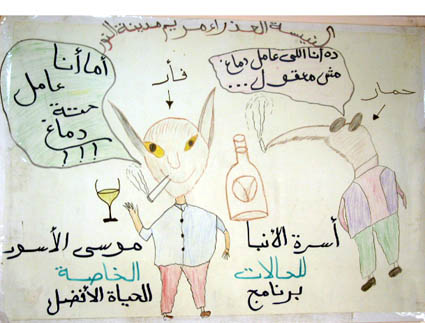 كنيسة العذراء مريم مدينة النور
ده أنا اللى عامل دماغ
مش معقول...
أما أنا
عامل
حتة
دماغ
!!!
فأر
حمار
أسرة الأنبا موسى الأسود
للحالات الخاصة
برنامج الحياة الأفضل